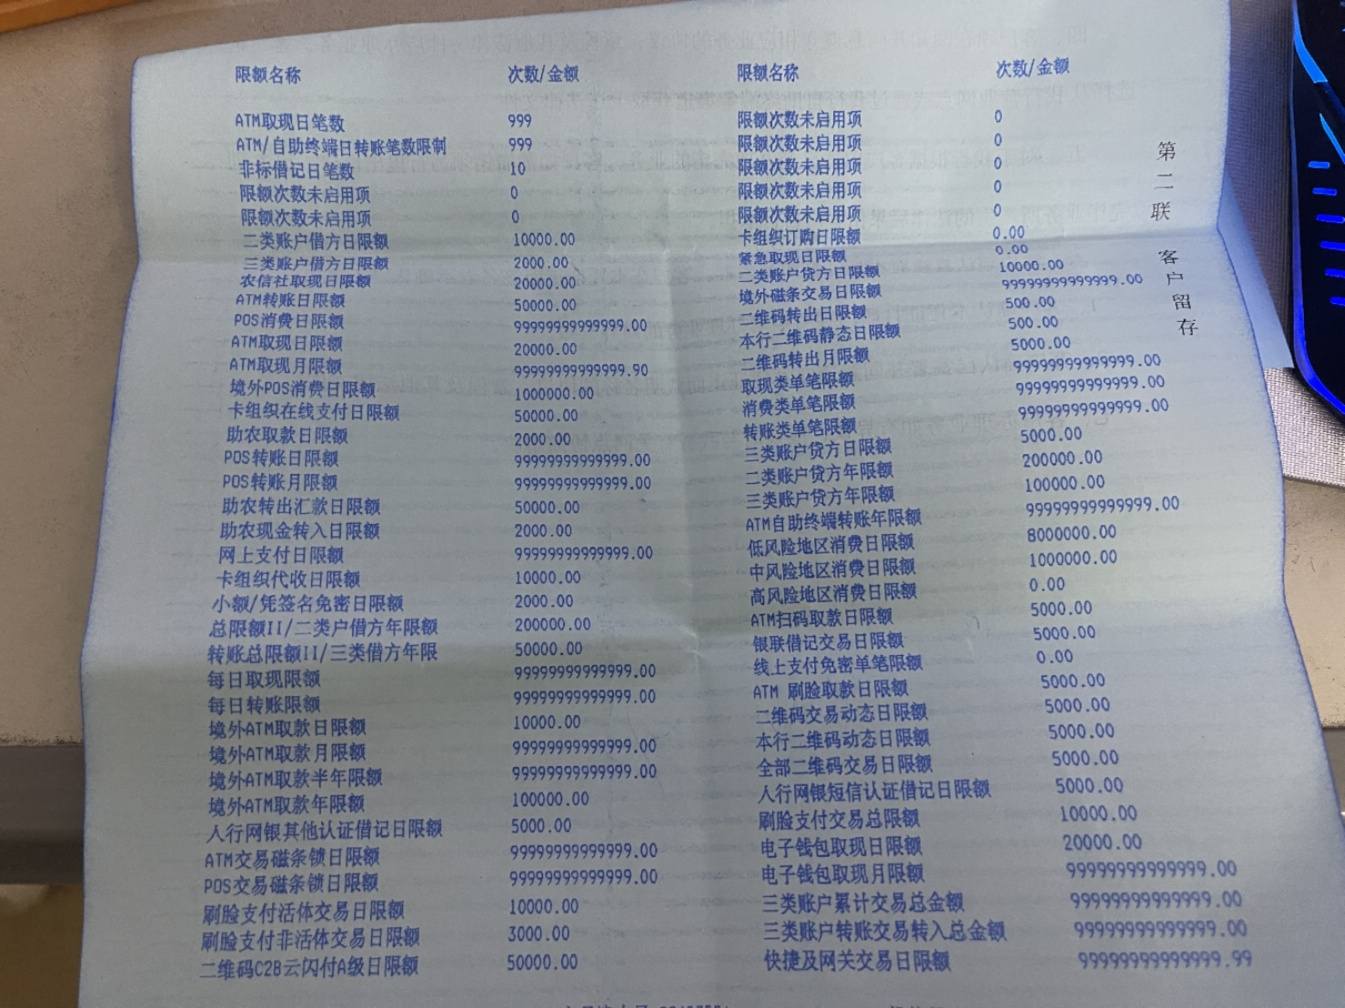 限额名称 次数/金额
ATM取现日笔数 999
ATM/自助终端日转账笔数限制 999
非标借记日笔数 10
限额次数未启用项 0
限额次数未启用项 0
二类账户借方日限额 10000.00
三类账户借方日限额 2000.00
农信社取现日限额 20000.00
ATM转账日限额 50000.00
POS消费日限额 99999999999999.00
ATM取现日限额 20000.00
ATM取现月限额 99999999999999.90
境外POS消费日限额 1000000.00
卡组织在线支付日限额 50000.00
助农取款日限额 2000.00
POS转账日限额 99999999999999.00
POS转账月限额 99999999999999.00
助农转出汇款日限额 50000.00
助农现金转入日限额 2000.00
网上支付日限额 99999999999999.00
卡组织代收日限额 10000.00
小额/凭签名免密日限额 2000.00
总限额II/二类户借方年限额 200000.00
转账总限额II/三类借方年限 50000.00
每日取现限额 99999999999999.00
每日转账限额 99999999999999.00
境外ATM取款日限额 10000.00
境外ATM取款月限额 99999999999999.00
境外ATM取款半年限额 99999999999999.00
境外ATM取款年限额 100000.00
人行网银其他认证借记日限额 5000.00
ATM交易磁条锁日限额 99999999999999.00
POS交易磁条锁日限额 99999999999999.00
刷脸支付活体交易日限额 10000.00
刷脸支付非活体交易日限额 3000.00
二维码C2B云闪付A级日限额 50000.00
限额名称 次数/金额
限额次数未启用项 0
限额次数未启用项 0
限额次数未启用项 0
限额次数未启用项 0
限额次数未启用项 0
卡组织订购日限额 0.00
紧急取现日限额 0.00
二类账户贷方日限额 10000.00
境外磁条交易日限额 99999999999999.00
二维码转出日限额 500.00
本行二维码静态日限额 500.00
二维码转出月限额 5000.00
取现类单笔限额 99999999999999.00
消费类单笔限额 99999999999999.00
转账类单笔限额 99999999999999.00
三类账户贷方日限额 5000.00
二类账户贷方年限额 200000.00
三类账户贷方年限额 100000.00
ATM自助终端转账年限额 99999999999999.00
低风险地区消费日限额 8000000.00
中风险地区消费日限额 1000000.00
高风险地区消费日限额 0.00
ATM扫码取款日限额 5000.00
银联借记交易日限额 5000.00
线上支付免密单笔限额 0.00
ATM 刷脸取款日限额 5000.00
二维码交易动态日限额 5000.00
本行二维码动态日限额 5000.00
全部二维码交易日限额 5000.00
人行网银短信认证借记日限额 5000.00
刷脸支付交易总限额 10000.00
电子钱包取现日限额 20000.00
电子钱包取现月限额 99999999999999.00
三类账户累计交易总金额 99999999999999.00
三类账户转账交易转入总金额 99999999999999.00
快捷及网关交易日限额 99999999999999.99
第二联 客户留存